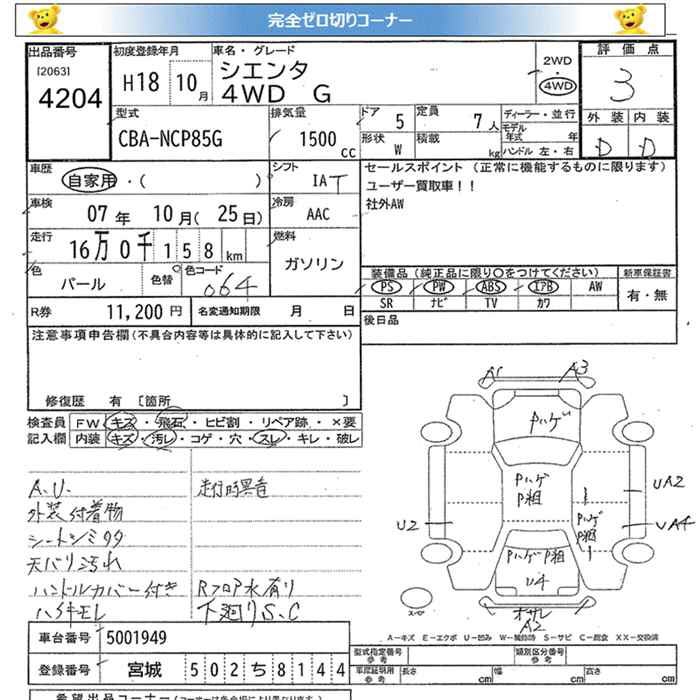 完全ゼロ切りコーナー
出品番号 初度登録年月 車名・グレード 評価点
[2063] 4204 H18 10月 シエンタ 4WD G 2WD 4WD 3
型式 排気量 ドア 5 定員 7人 ディーラー・並行 外装 内装
CBA-NCP85G 1500cc 形状 W 積載 kg モデル年式 年 D D
ハンドル 左・右
車歴 自家用・( ) シフト IAT セールスポイント (正常に機能するものに限ります)
ユーザー買取車!!
車検 07年 10月(25日) 冷房 AAC 社外AW
走行 16万0千158km 燃料 ガソリン
色 パール 色替 色コード 064 装備品(純正品に限り○をつけてください) 新車保証書
PS PW ABS エアB AW 有・無
SR ナビ TV カワ
R券 11,200円 名変通知期限 月 日 後日品
注意事項申告欄(不具合内容等は具体的に記入して下さい)
修復歴 有 [箇所 ]
検査員記入欄 FW キズ・飛石・ヒビ割・リペア跡・×要
内装 キズ・汚レ・コゲ・穴・スレ・キレ・破レ
A.U. 走行時異音
外装付着物
シートシミ
天バリ汚れ
ハンドルカバー付き Rフロア水有り
ハゲキモレ 下廻りS.C
A1 A3
Pハゲ
Pハゲ P粗
Pハゲ P粗
U2 UA2 UA4
Pハゲ P粗
U4
オサレ
A2
A-キズ E-エクボ U-凹み W-補修跡 S-サビ C-腐食 XX-交換済
車台番号 5001949 型式指定番号 参考 類別区分番号 参考
登録番号 宮城 502ち8144 車庫証明用 参考 長さ cm 幅 cm 高さ cm
希望出品コーナー